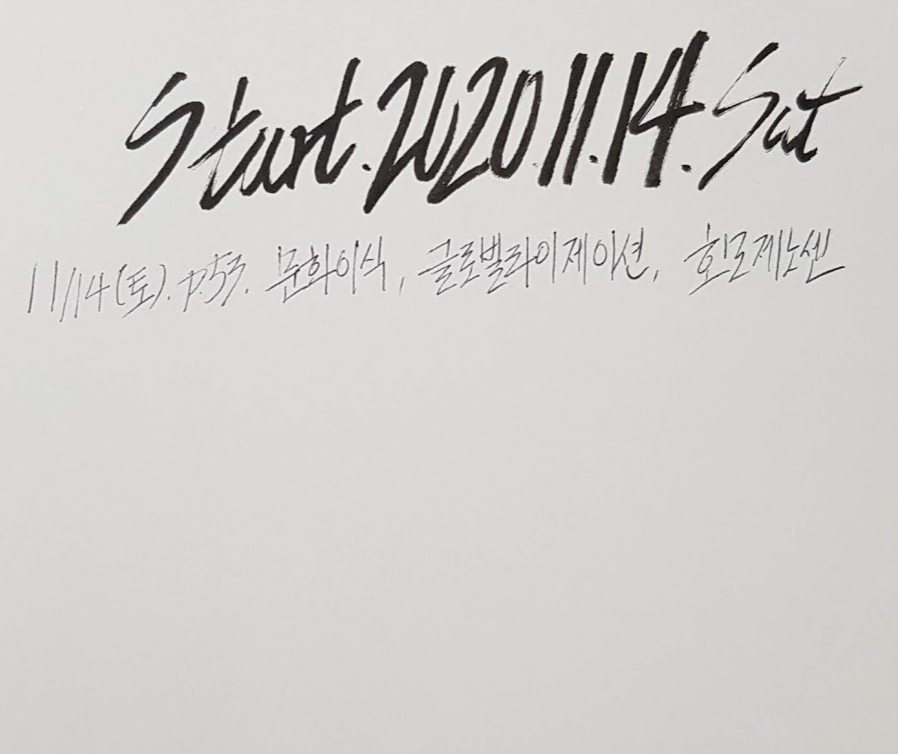 Start. 2020.11.14. Sat
11/14(토). p.53. 문화이식, 글로벌라이제이션, 호모제노센